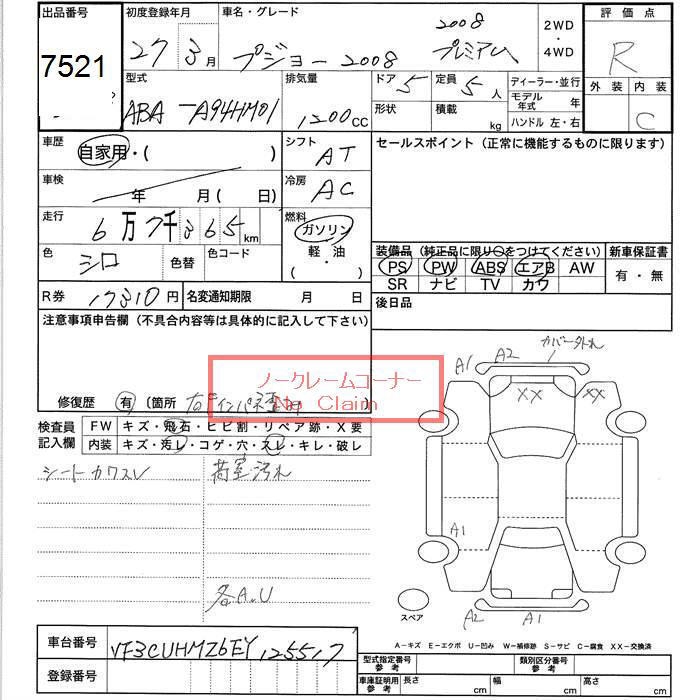 出品番号 初度登録年月 車名・グレード 評価点
7521 27 3月 プジョー 2008 2008 プレミアム 2WD ・ 4WD R
型式 排気量 ドア 5 定員 5人 ディーラー・並行 外装 内装
ABA-A94HM01 1200cc 形状 積載 kg モデル年式 年 C
ハンドル 左・右
車歴 自家用・( ) シフト AT セールスポイント (正常に機能するものに限ります)
車検 年 月 ( 日) 冷房 AC
走行 6万7千365km 燃料 ガソリン
色 シロ 色替 色コード 軽・油 ( ・ )
装備品 (純正品に限り○をつけてください) 新車保証書
PS PW ABS エアB AW 有・無
SR ナビ TV カワ
R券 17310円 名変通知期限 月 日 後日品
注意事項申告欄 (不具合内容等は具体的に記入して下さい)
ノークレームコーナー
No Claim
修復歴 有 (箇所
検査員記入欄 FW キズ・飛石・ヒビ割・リペア跡・X要
内装 キズ・汚レ・コゲ・穴・スレ・キレ・破レ
シートカワスレ 荷室汚れ
各A.U
カバー外れ
A1 A2
XX XX
A1
スペア A2 A1
A-キズ E-エクボ U-凹み W-補修跡 S-サビ C-腐食 XX-交換済
車台番号 VF3CUHMZ6EY125517
型式指定番号 参考 類別区分番号 参考
登録番号 車庫証明用 参考 長さ cm 幅 cm 高さ cm